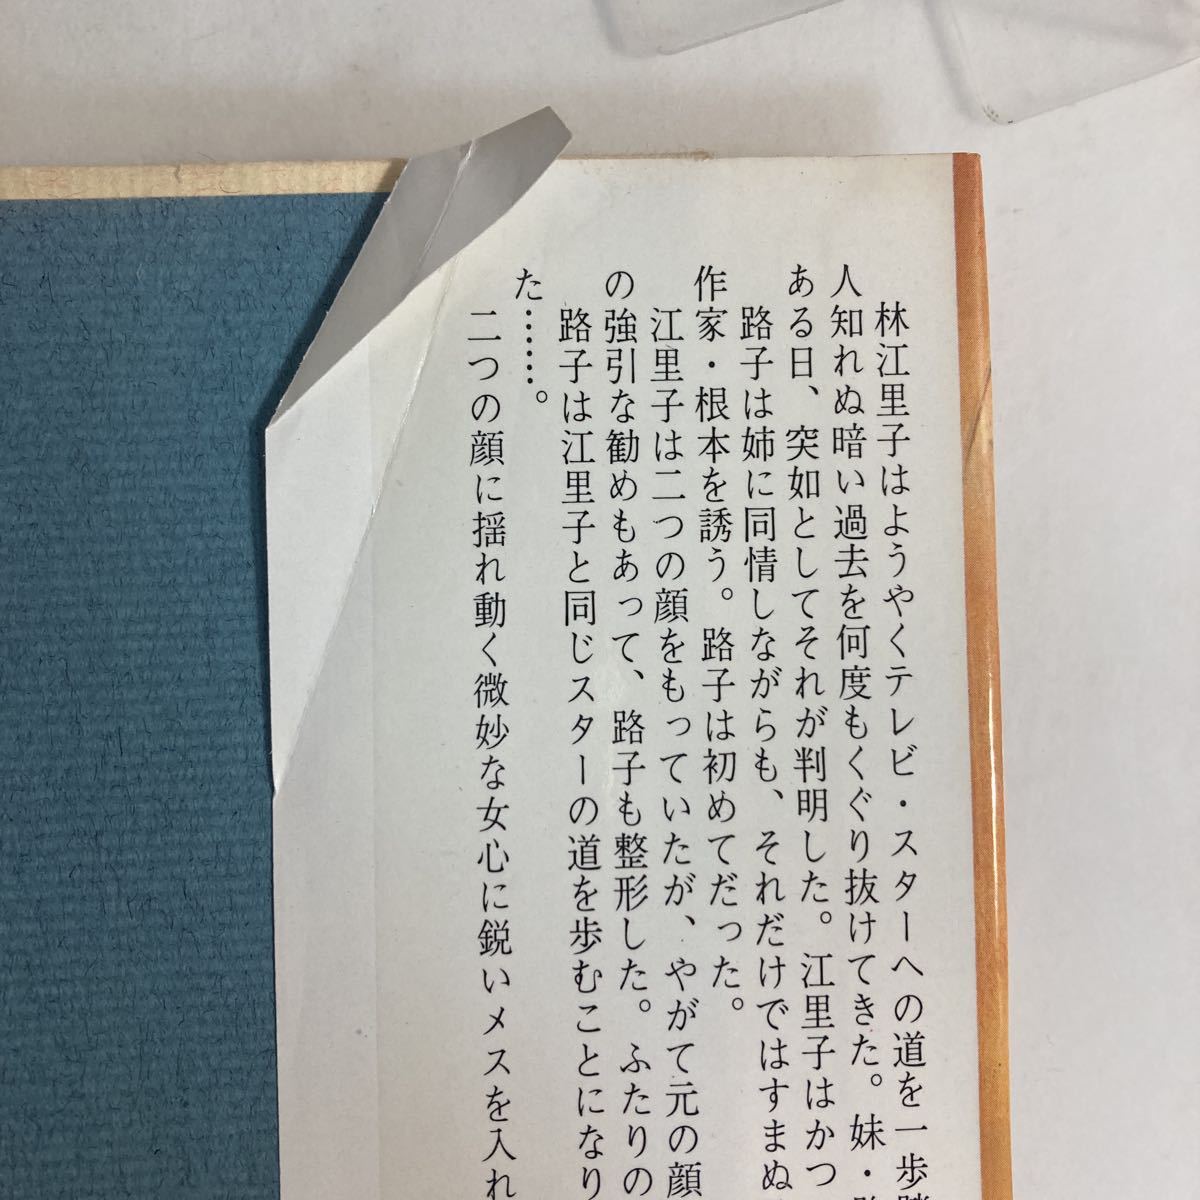 林江里子はようやくテレビ・スターへの道を一歩
人知れぬ暗い過去を何度もくぐり抜けてきた。妹・
ある日、突如としてそれが判明した。江里子はかつ
路子は姉に同情しながらも、それだけではすまぬ
作家・根本を誘う。路子は初めてだった。
江里子は二つの顔をもっていたが、やがて元の顔
の強引な勧めもあって、路子も整形した。ふたりの
路子は江里子と同じスターの道を歩むことになり
た……。
二つの顔に揺れ動く微妙な女心に鋭いメスを入れ